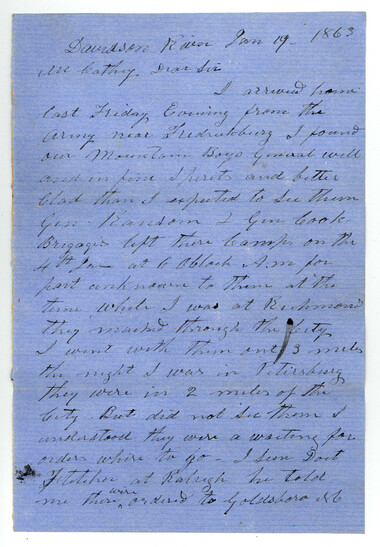 Davidson River Jan 19 - 1863
Mr Cathey, Dear Sir
I arrived home
last Friday Evening from the
Army near Fredricksburg I found
our Mountain Boys General well
and in fine Spirits and better
Clad than I expected to See them
Gen Ransom & Gen Cook
Brigages left there Camps on the
4th at 6 Oblock A.m for
part unknown to them at the
time while I was at Richmond
they marched through the City
I went with them out 3 miles
the night I was in Petersburg
they were in 2 miles of the
City But did not See them I
understood they were a waiting for
orders where to go - I Seen Doct
Fletcher at Raleigh he told
me there were ordered to Goldsboro NC